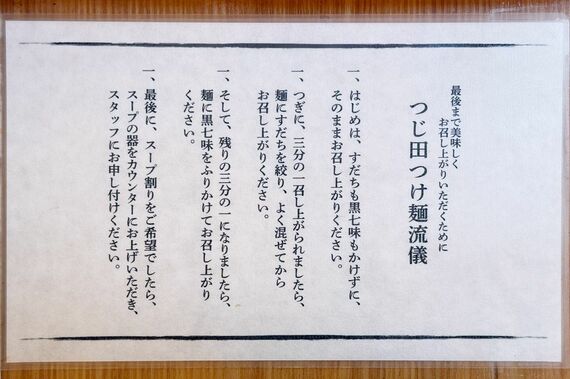 最後まで美味しく
お召し上がりいただくために
つじ田つけ麺流儀
一、はじめは、すだちも黒七味もかけずに、
そのままお召し上がりください。
一、つぎに、三分の一召し上がられましたら、
麺にすだちを絞り、よく混ぜてから
お召し上がりください。
一、そして、残りの三分の一になりましたら、
麺に黒七味をふりかけてお召し上がり
ください。
一、最後に、スープ割りをご希望でしたら、
スープの器をカウンターにお上げいただき、
スタッフにお申し付けください。